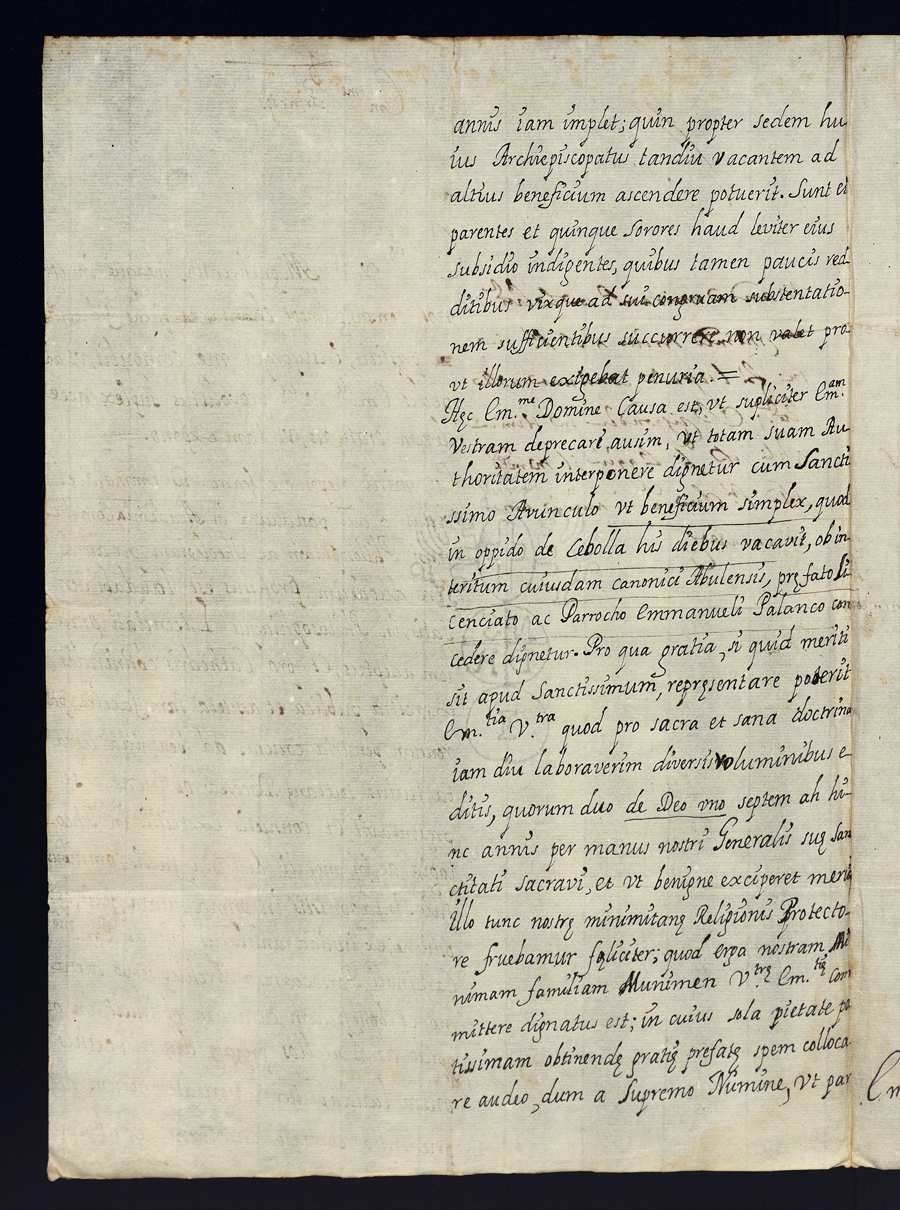 annis iam implet; quin propter sedem hu
ius Archiepiscopatus tandiu vacantem ad
altius beneficium ascendere potuerit. Sunt ei
parentes et quinque sorores haud leviter eius
subsidio indigentes, quibus tamen paucis red
ditibus vixque ad sui congruam substentatio-
nem sufficientibus succurrere non valet pro-
vt illorum exigebat penuria. =
Hęc Em.me Domine Causa est, vt supliciter Em.am
Vestram deprecari ausim, vt totam suam Au
thoritatem interponere dignetur cum Sancti
ssimo Avunculo vt beneficium simplex, quod
in oppido de Cebolla his diebus vacavit, ob in
teritum cuiusdam canonici Abulensis, pręfato li
cenciato ac Parrocho Emmanueli Palanco con
cedere dignetur. Pro qua gratia, si quid meriti
sit apud Sanctissimum, repręsentare poterit
Em.tia V.tra quod pro sacra et sana doctrina
iam diu laboraverim diversis voluminibus e-
ditis, quorum duo de Deo vno septem ab hi-
nc annis per manus nostri Generalis suę San
ctitati sacravi, et vt benigne exciperet merui
illo tunc nostrę minimitanę Religionis Protecto-
re fruebamur fęliciter; quod erga nostram Mi
nimam familiam Munimen V.trę Em.tię com
mittere dignatus est; in cuius sola pietate po
tissimam obtinendę gratię prefatę spem colloca-
re audeo, dum a Supremo Numine, vt par